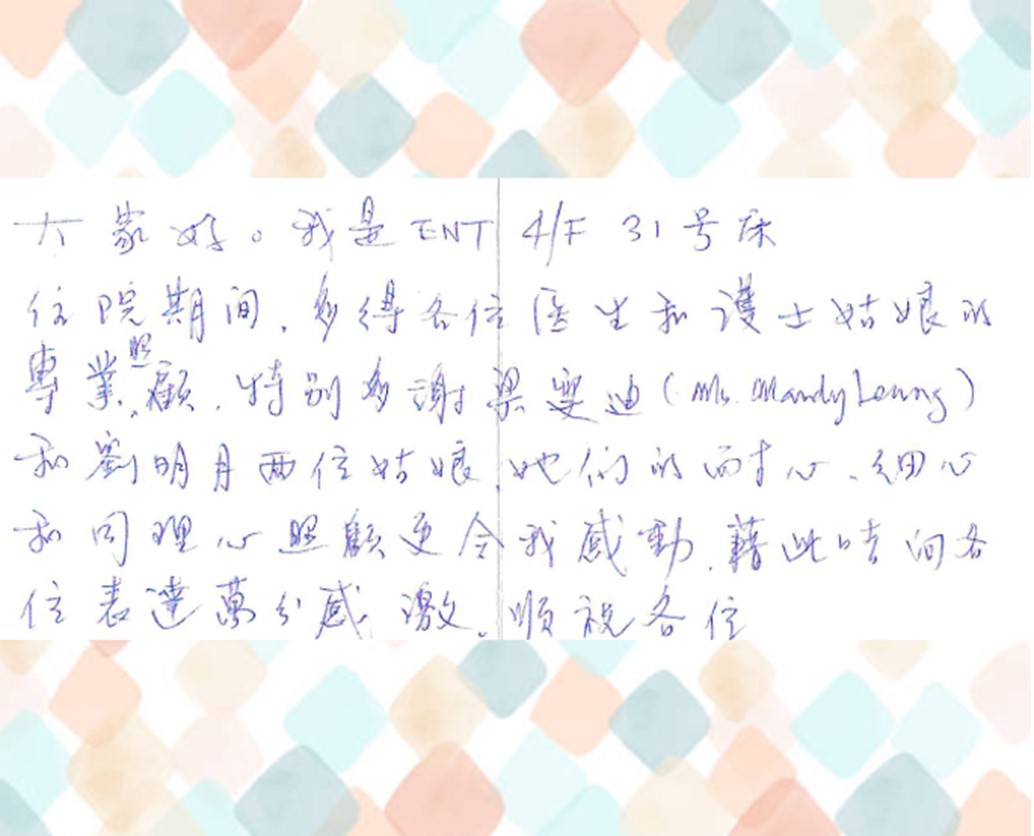 大家好。我是ENT 4/F 31号床
住院期间,多得各位医生和護士姑娘的
專業照顧,特别多謝梁雯迪(Ms. Mandy Leung)
和劉明月两位姑娘,她们的耐心、细心
和同理心照顧更令我感動,藉此時向各
位表達萬分感激,順祝各位